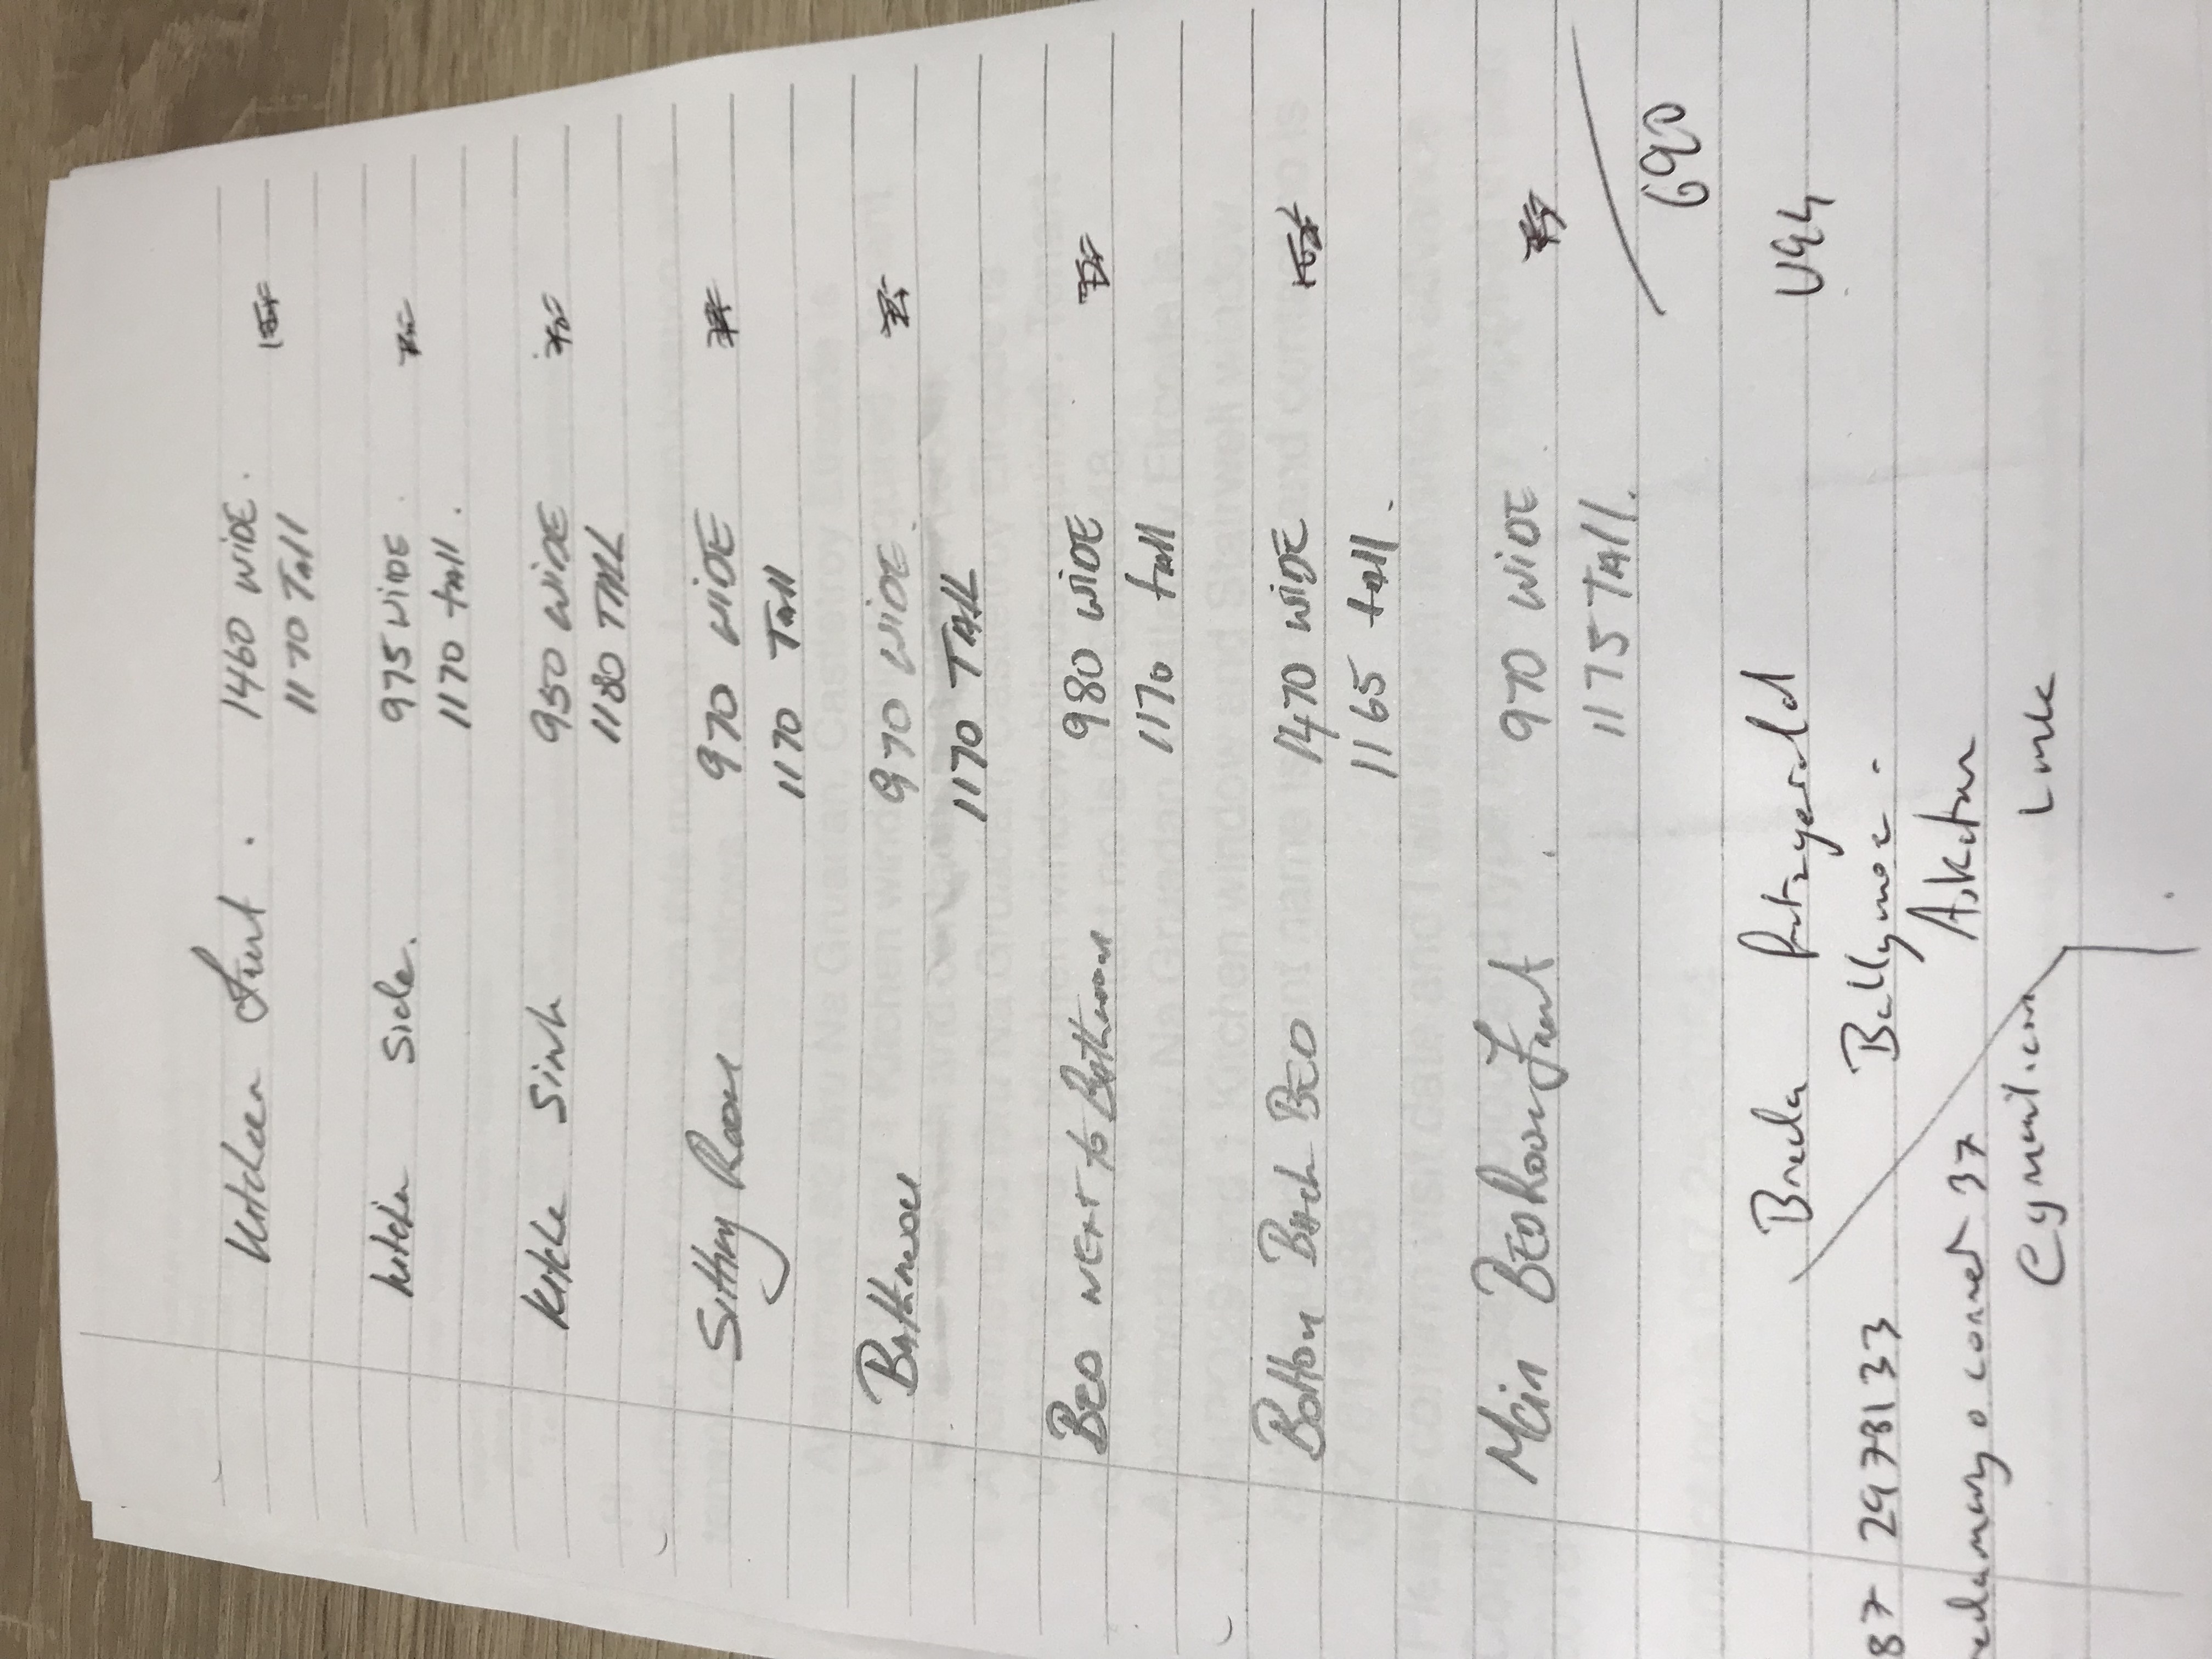 Kitchen Front . 1460 WIDE .
1170 Tall
kitchen Side. 975 WIDE .
1170 tall .
Kitche Sink 950 WIDE
1180 TALL
Sitting Room 970 WIDE
1170 Tall
Bathroom 970 WIDE .
1170 TALL
BED NEXT to Bathroom 980 WIDE
1170 tall
Bottom Back BED 1470 WIDE
1165 tall .
Main BEDRoom Front . 970 WIDE
1175 TALL.
690
Breda Fitzgerald V94
87 2978133 Ballymoe .
Askeaton
edamaryoconnor37
@gmail.com Lmk